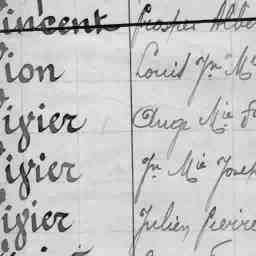 Vincent Prosper Albe
Vion Louis Jn M
Vivier Ange Mie
Vivier Jn Mie Josep
Vivier Julien Pierre